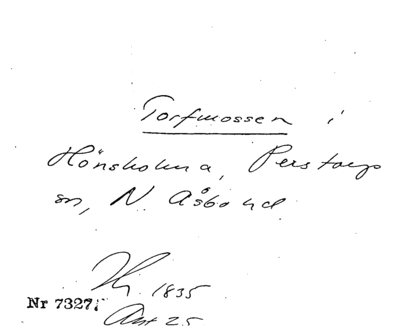 Torfmossen i
Hönsholma, Perstorps
sn, N. Åsbo hd
1835
Nr 7327
Art 25